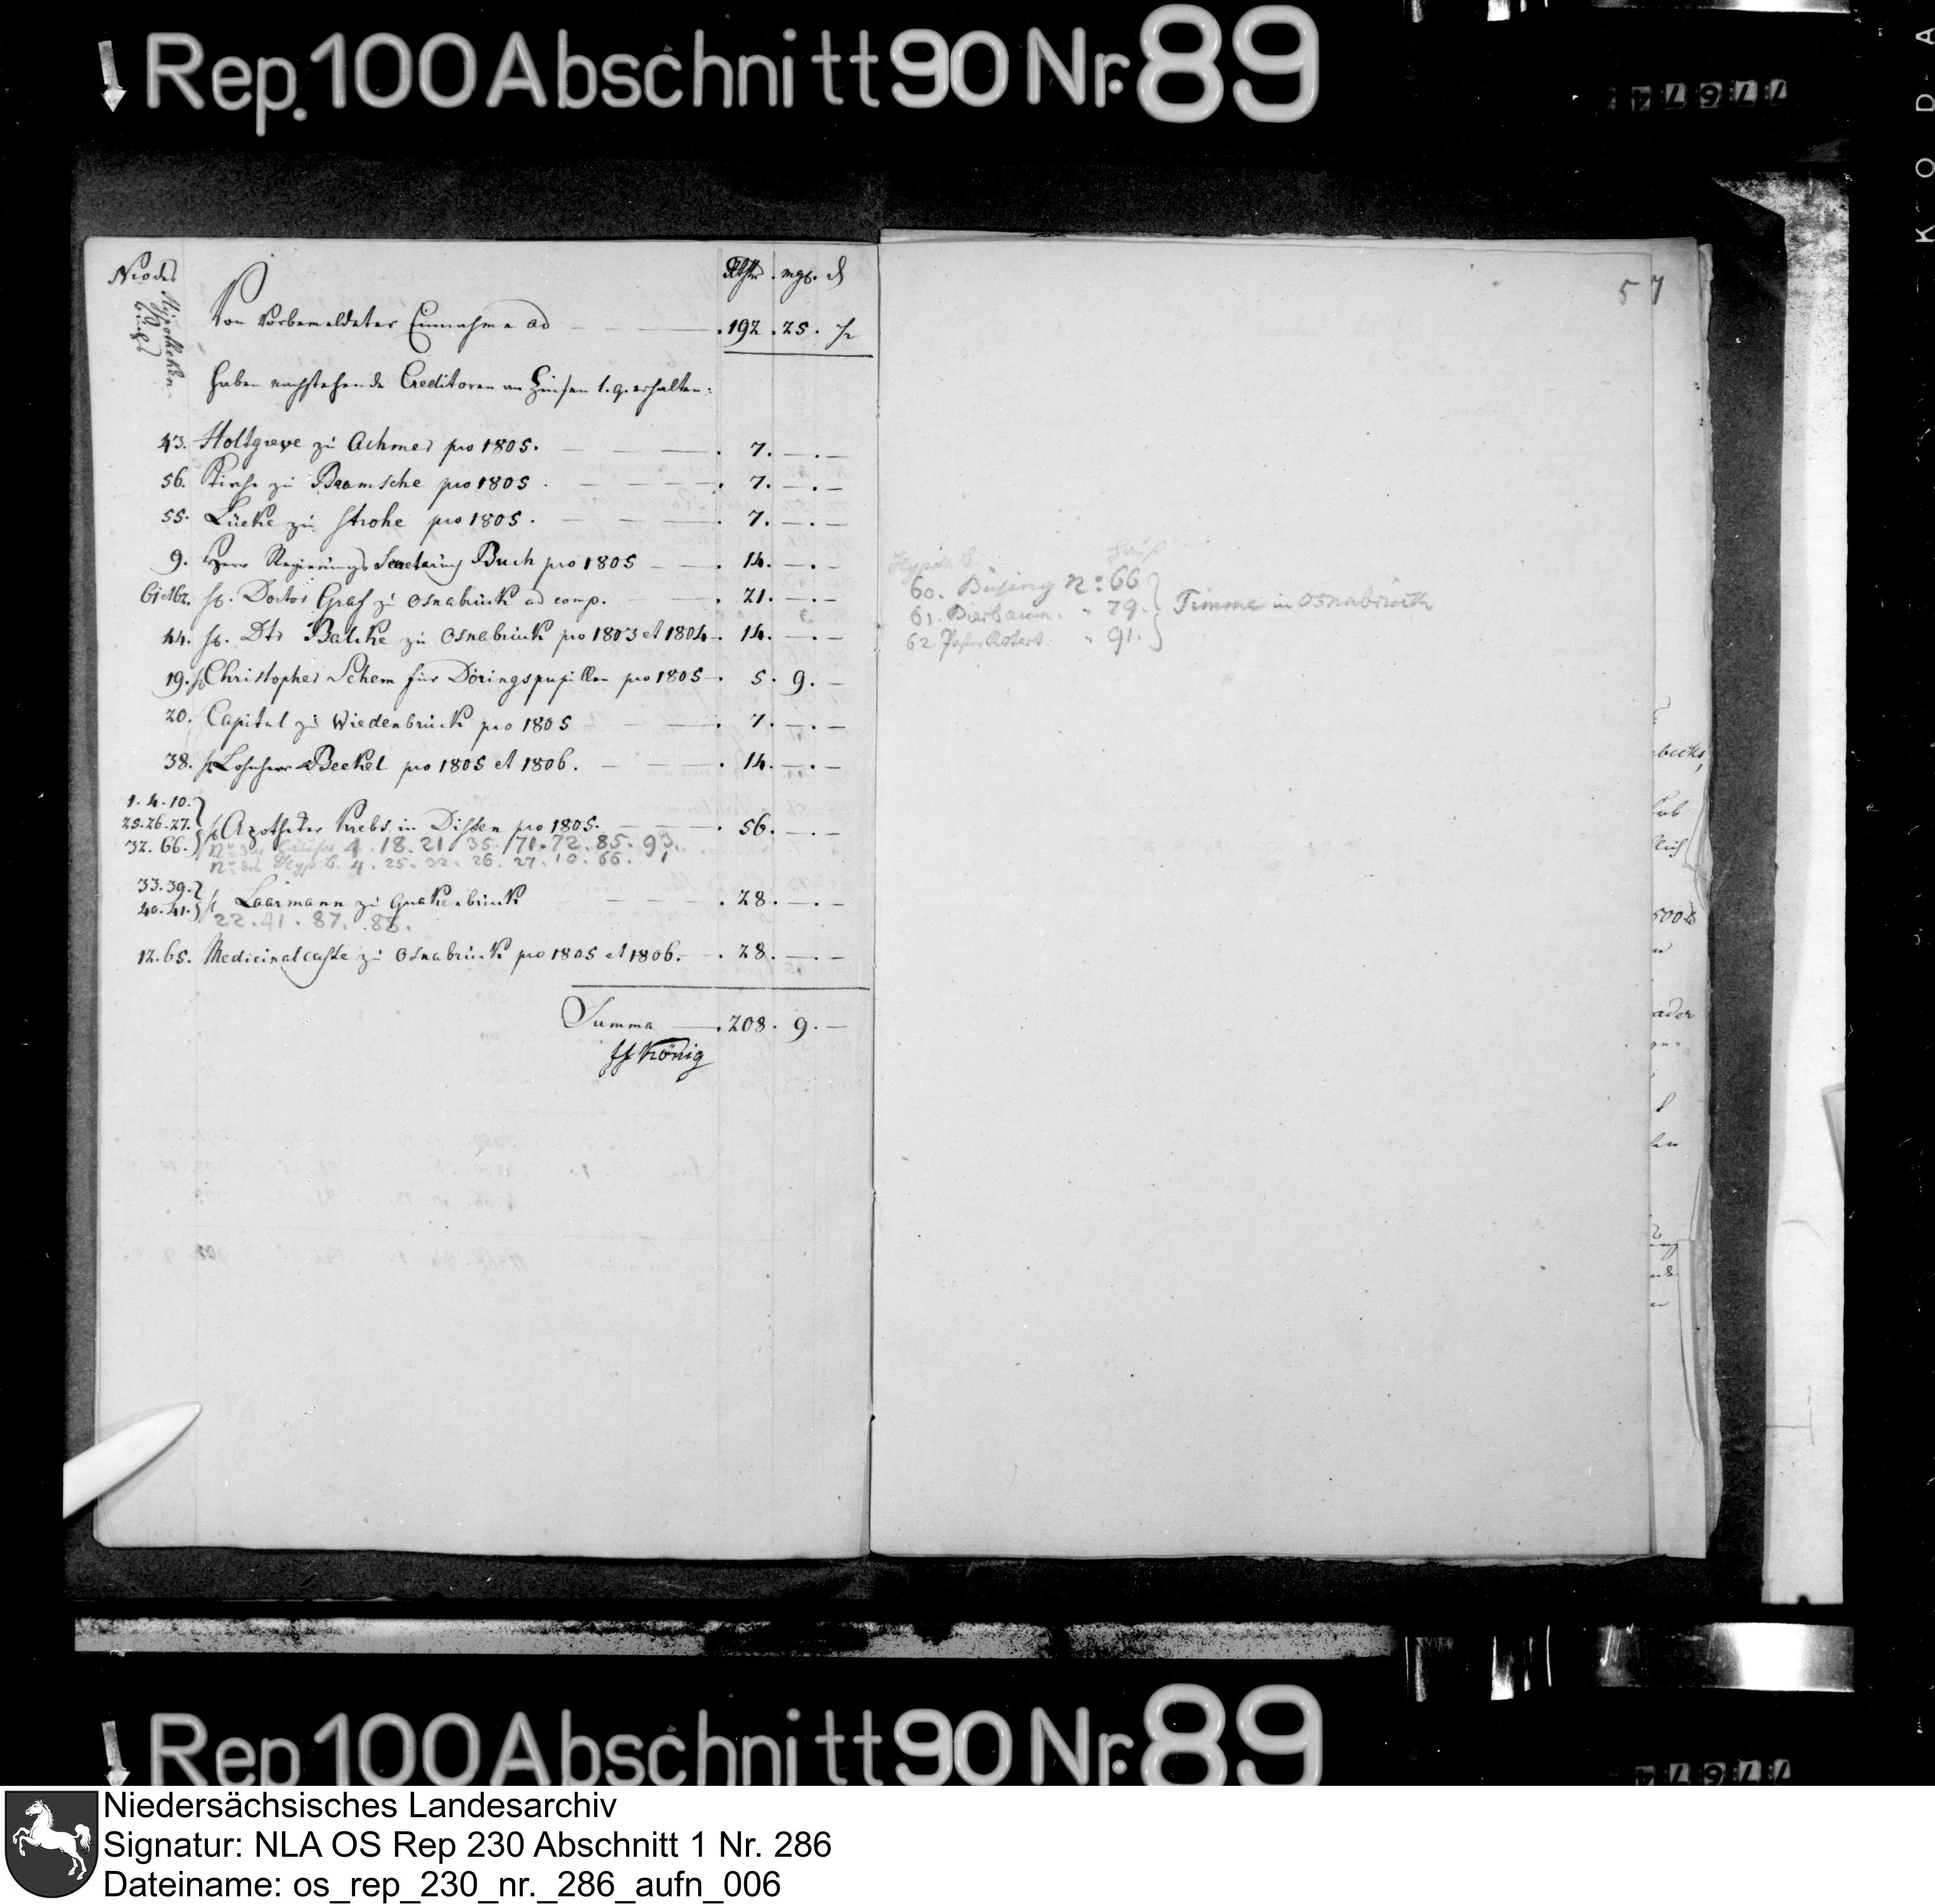 Rep. 100 Abschnitt 90 Nr. 89
KODA
No des Hypotheken
Rthlr. mgr. d
Von Vorbemeldeter Einnahme ad — . 192 . 25 .
haben nachstehende Creditoren an Zinsen l. q. erhalten:
43. Holtgreve zu Achmer pro 1805. — . 7. — . —
56. Kirche zu Bramsche pro 1805 . — . 7. — . —
55. Lücke zu Strohe pro 1805 . — . 7. — . —
9. Herr Regierungs Secretarius Buch pro 1805 — . 14. — . —
61 et 62. H. Doctor Graf zu Osnabrück ad comp. — . 21. — . —
44. H. Dtr Balcke zu Osnabrück pro 1803 et 1804 — . 14. — . —
19. Christopher Schem für Döringspupillen pro 1805 — . 5. 9. —
20. Capitul zu Wiedenbrück pro 1805 — . 7. — . —
38. Lohnherr Beckel pro 1805 et 1806. — . 14. — . —
1. 4. 10.
25. 26. 27.
32. 66. Apotheker Krebs in Dissen pro 1805. — . 56. — . —
No der Häuser 1. 18. 21. 35. 71. 72. 85. 93.
No des Hyp. B. 4. 25. 32. 26. 27. 10. 66. 1
33. 39.
40. 41. Laarmann zu Quakenbrück — . 28. — . —
22. 41. 87. 88.
12. 65. Medicinalcasse zu Osnabrück pro 1805 et 1806. — . 28. — . —
Summa — . 208. 9. —
König
57
Hypoth. B. Hauß
60. Büsing No. 66
61. Bierbaum. " 79. Timme in Osnabrück
62 Rotert. " 91.
Rep 100 Abschnitt 90 Nr. 89
Niedersächsisches Landesarchiv
Signatur: NLA OS Rep 230 Abschnitt 1 Nr. 286
Dateiname: os_rep_230_nr._286_aufn_006